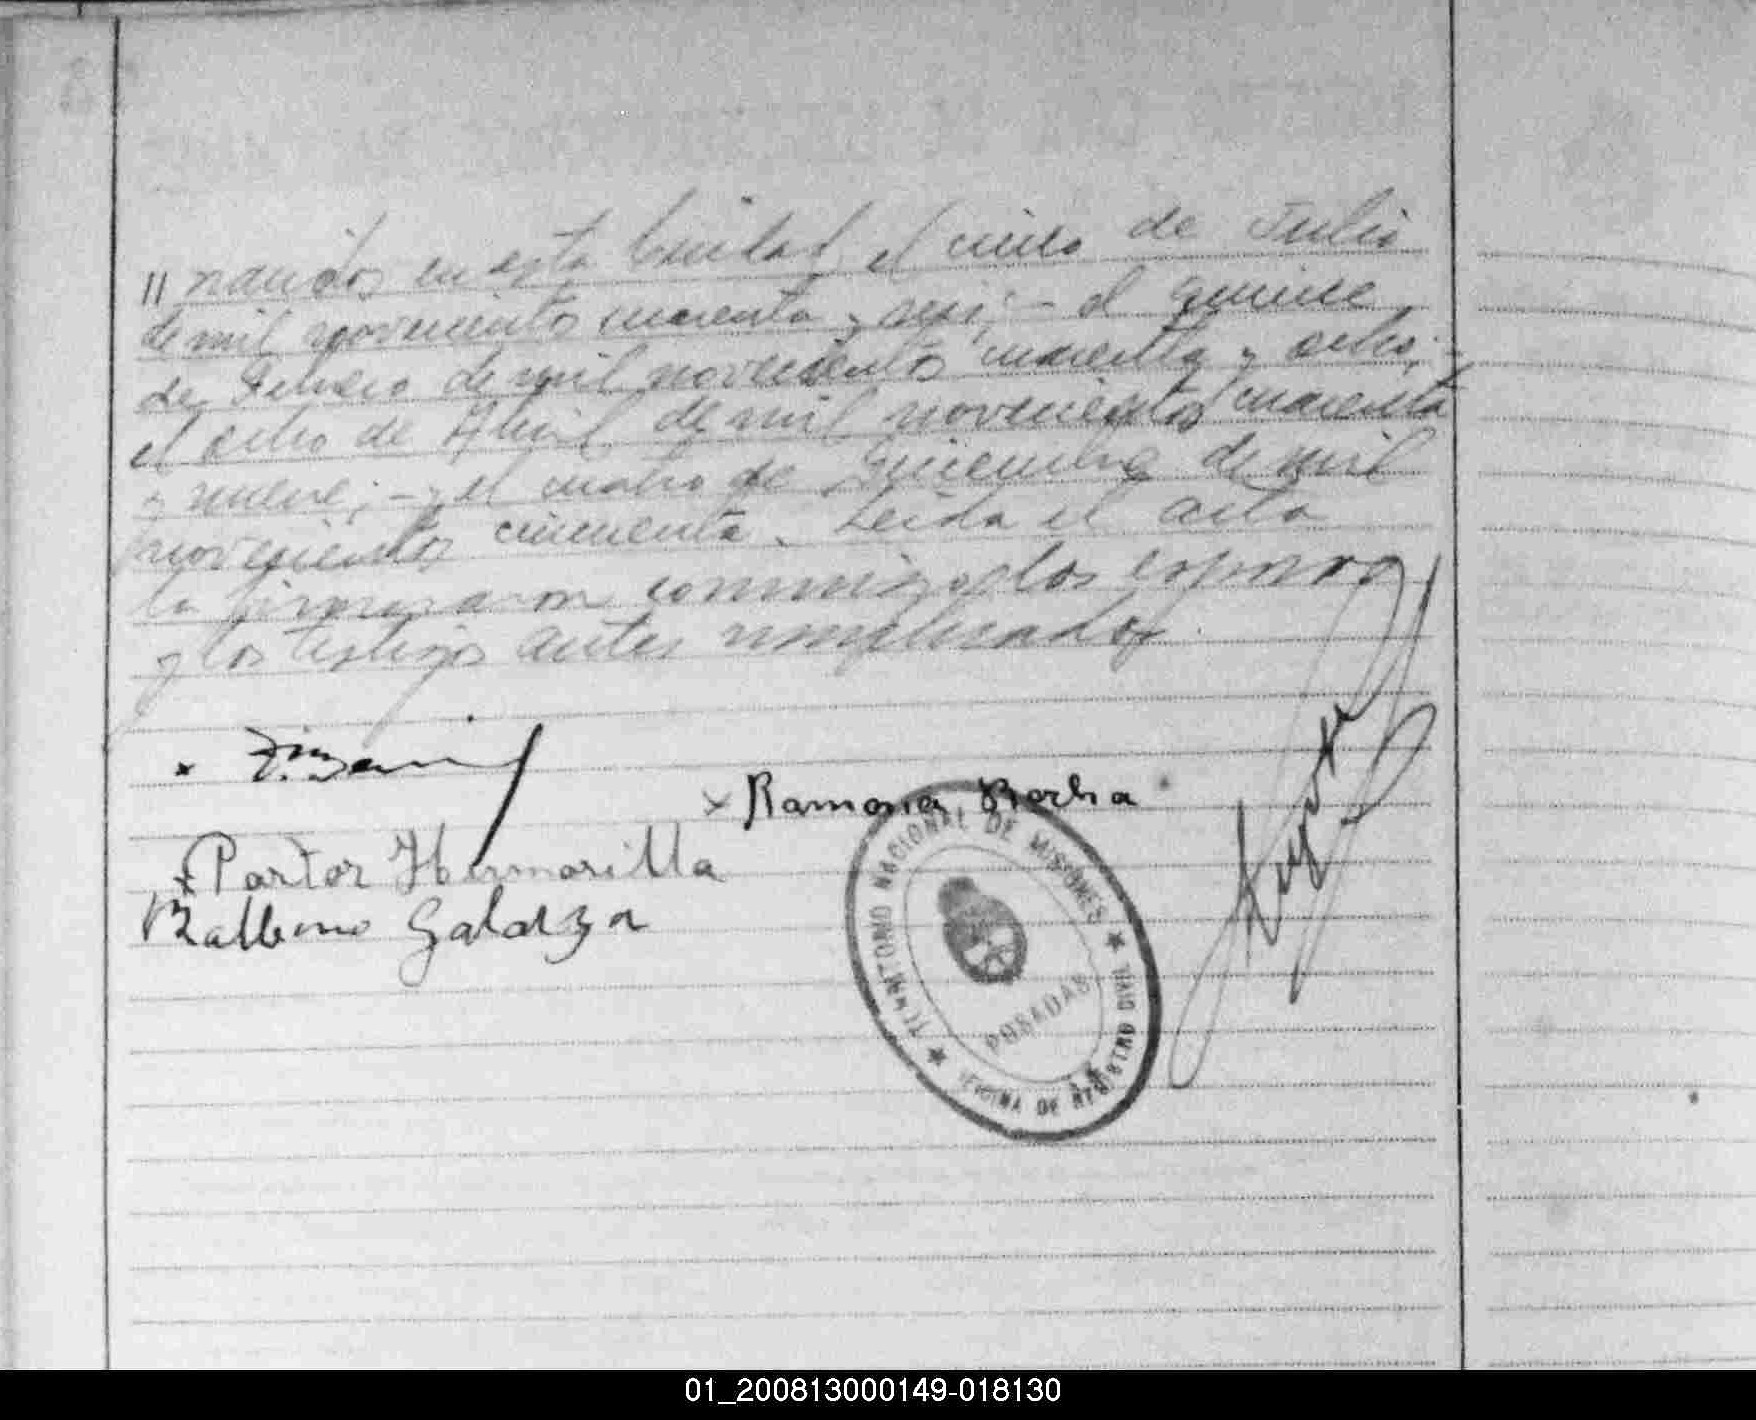 // nacidos en esta Ciudad, el cinco de Julio
de mil novecientos cuarenta y seis; - el quince
de Febrero de mil novecientos cuarenta y ocho; -
el ocho de Abril de mil novecientos cuarenta
y nueve; - y el cuatro de Diciembre de mil
novecientos cincuenta. Leída el acta
la firmaron conmigo los esposos
y los testigos antes nombrados.
x
x Ramona Rocha
x Pastor Hermosilla
Balbino Galarza
TERRITORIO NACIONAL DE MISIONES
POSADAS
OFICINA DE REGISTRO CIVIL
01_200813000149-018130